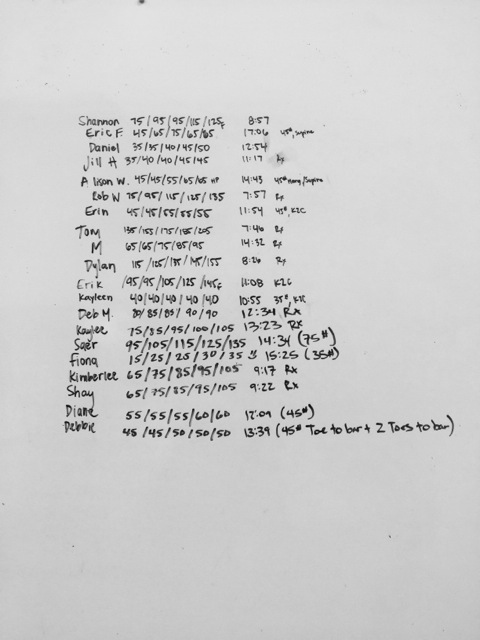 Shannon 75/95/95/115/125F 8:57
Eric F. 45/65/75/65/65 17:06 45#, supine
Daniel 35/35/40/45/50 12:54
Jill H 35/40/40/45/45 11:17 Rx
Alison W. 45/45/55/65/65 HP 14:43 45# Hang/Supine
Rob W 75/95/115/125/135 7:57 Rx
Erin 45/45/55/55/55 11:54 45#, K2C
Tom 135/155/175/185/205 7:46 Rx
M 65/65/75/85/95 14:32 Rx
Dylan 115/125/135/145/155 8:26 Rx
Erik /95/95/105/125/145F 11:08 K2C
Kayleen 40/40/40/40/40 10:55 35#, K2C
Deb M. 80/85/85/90/90 12:34 Rx
Kaylee 75/85/95/100/105 13:23 Rx
95/105/115/125/135 14:34 (75#)
Fiona 15/25/25/30/35 15:25 (35#)
Kimberlee 65/75/85/95/105 9:17 Rx
Shay 65/75/85/95/105 9:22 Rx
Diane 55/55/55/60/60 12:09 (45#)
Debbie 45/45/50/50/50 13:39 (45# Toe to bar + 2 Toes to bar)